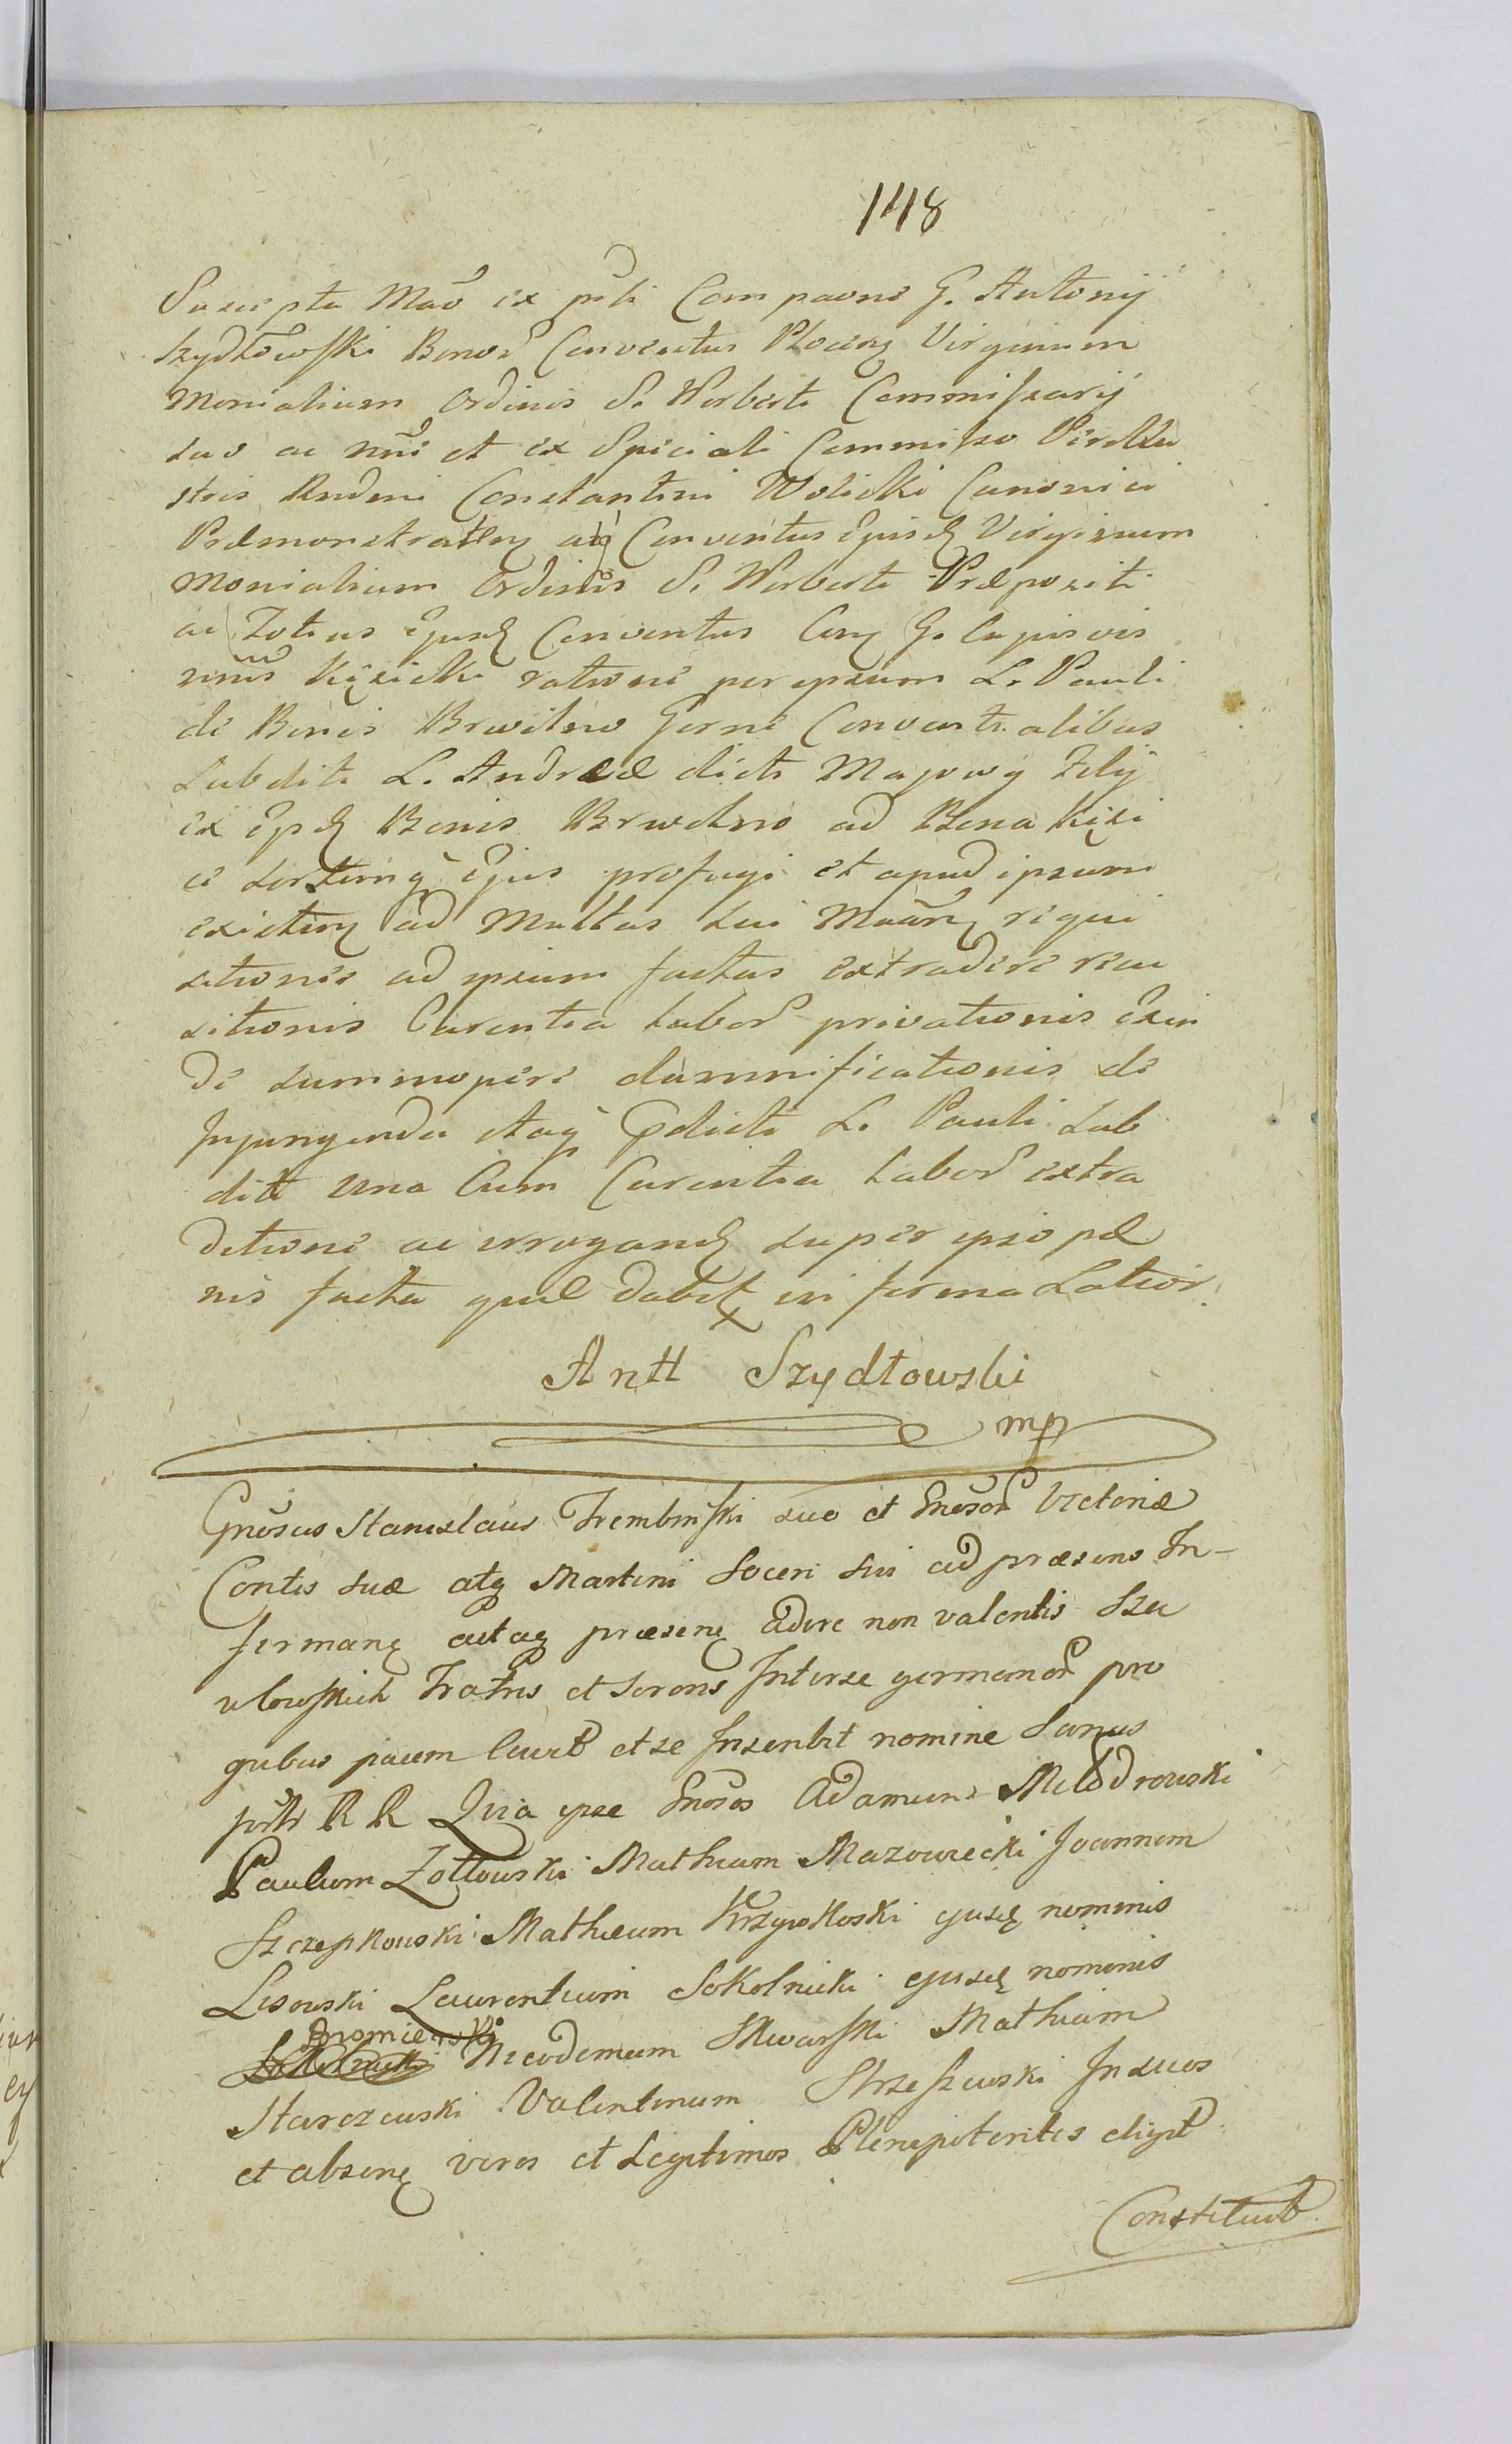 148
Suscepta Mão ex pñti Comparone G. Antonij
Szydłowski Bonor Conventus Plocens Virginum
Monialium Ordinis S. Norberti Commissarij
suo ac nñi et ex Speciali Commisso Perillu
stris Rndmi Constantini Wolicki Canonici
Præmonstraten atq Conventus Ejusd Virginum
Monialium Ordinis S. Norberti Præpositi
ac Totius Ejusd Conventus Con G.
Kęsicki ratione per ipsum L. Pauli
de Bonis Brwilno Gorne Conventualibus
Subditi L. Andreæ dicti Majowy Filij
ex Ejusd Bonis Brwilno ad Bona Kęsi
ce Sortemq Ejus profugi et apud ipsum
existen ad Multas sui requi
sitiones ad ipsum factas extradere recu
sitionis Carentia Labor privationis Exin
de summopere damnificationis de
Injungenda Itaq Pdicti L. Pauli Sub
diti Una Cum Carentia Labor extra
ditione ac irrogand super ipso pæ
nis facta quæ dabit in forma Latior.
Antt Szydłowski
mp
Gnõsus Stanislaus Trembinski suo et Gnosor Victoriæ
Contis suæ atq Martini Soceri sui ad præsens In-
firman actaq præsen adire non valentis Szu
Fratris et Sororis Interse germanor pro
quibus pacem Cavet et se Inscribit nomine Sanus
pñtr R R Quia ipse Gnosos Adamum Młodrowski
Paulum Zołtowski Mathiam Mazowiecki Joannem
Szczepkowski Mathæum Krzywkoski ejusd nominis
Lisowski Laurentium Sokolnicki ejusd nominis
Gromienski
Nicodemum Skwarski Mathiam
Starczewski Valentinum Strzeszewski Insuos
et absen veros et Legitimos Plenipotentes eligit
Constituit